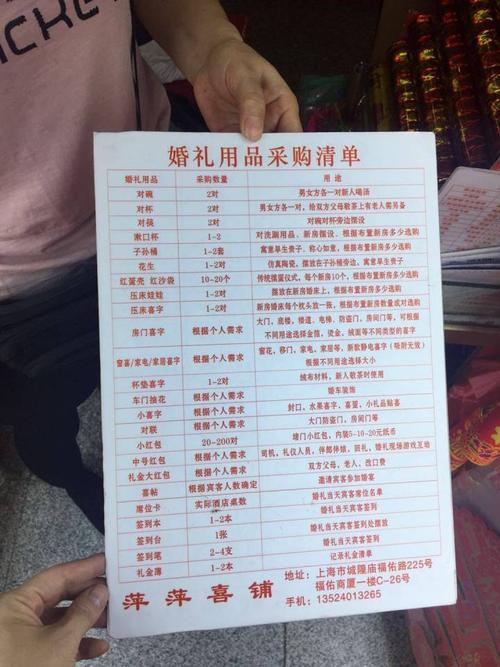 婚礼用品采购清单
婚礼用品 采购数量 用 途
对碗 2对 男女方各一对新人喝汤
对杯 2对 男女方各一对，给双方父母敬茶上有老人需另备
对筷 2对 对碗对杯旁边摆设
漱口杯 1-2 对洗漱用品、新房摆设、根据布置新房多少选购
子孙桶 1-2套 寓意早生贵子、称心如意、根据布置新房多少选购
花生 1-2对 仿真陶瓷，摆放在子孙桶旁边、寓意早生贵子
红蛋壳 红沙袋 10-20个 传统摆蛋仪式，每个新房10个，根据布置新房多少选购
压床娃娃 1-2对 摆放在新房婚床上，根据布置新房多少选购
压床喜字 1-2对 新房婚床每个枕头放一张，根据布置新房数量或对选购
房门喜字 根据个人需求 大门、底楼、楼道、电梯、防盗门、房间门等，可根据
不同用途选择金箔，烫金，绒面等不同类型的喜字
窗喜/家电/家居喜字 根据个人需求 窗花，移门，家电，家居等，新款静电喜字（吸附无痕）
根据不同用途选择大小
杯垫喜字 1-2对 绒布材料，新人敬茶时使用
车门抽花 根据个人需求 婚车装饰
小喜字 根据个人需求 封口，水果喜字，喜蛋，小礼品贴喜
对联 根据个人需求 大门防盗门，房间门等
小红包 20-200对 堵门小红包，内装5-10-20元纸币
中号红包 根据个人需求 司机，礼仪人员，伴郎伴娘，回礼，婚礼现场游戏互动
礼金大红包 根据个人需求 双方父母，老人，改口费
喜帖 根据宾客人数确定 邀请宾客参加婚宴
席位卡 实际酒店桌数 婚礼当天宾客席位名单
签到本 1-2本 婚礼当天宾客签到
签到台 1张 婚礼当天宾客签到处摆放
签到笔 2-4支 婚礼当天宾客签到
礼金薄 1-2本 记录礼金清单
萍萍喜铺
地址：上海市城隍庙福佑路225号
福佑商厦一楼C-26号
手机：13524013265